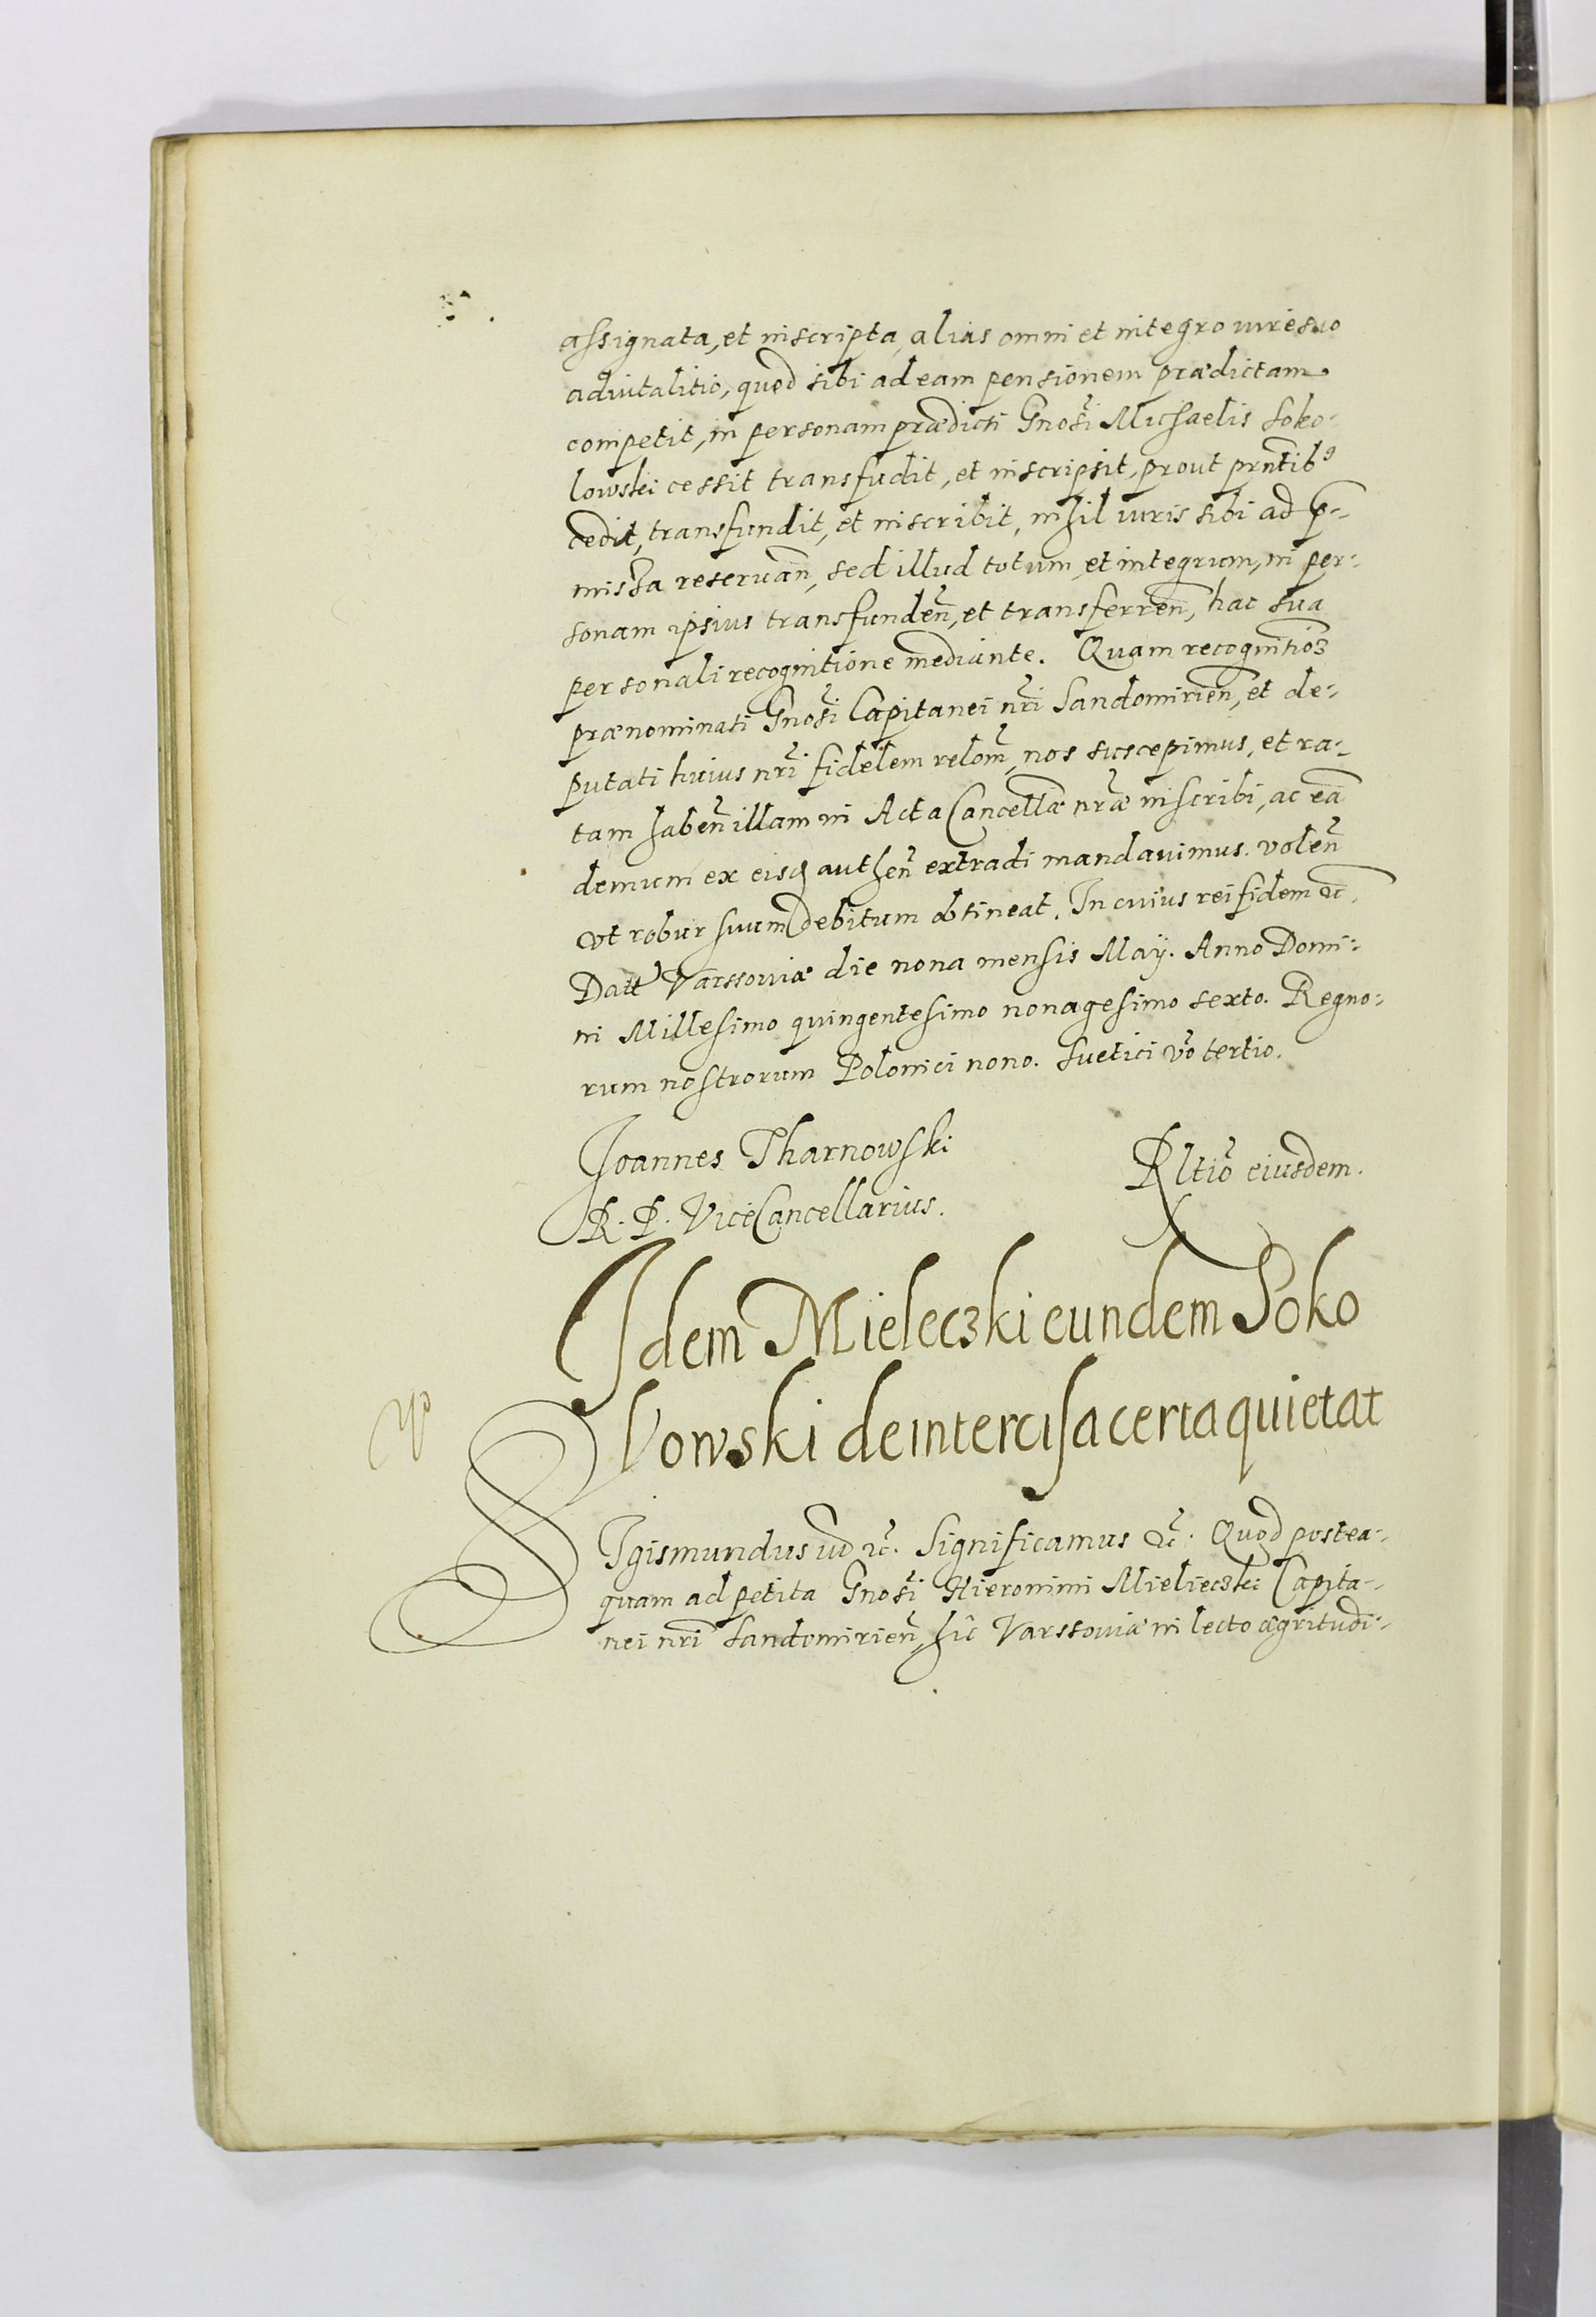 assignata, et inscripta, alias omni et integro iure suo
aduitalitio, quod sibi ad eam pensionem prædictam
competit, in personam prædicti Gnosi Michaelis Soko-
lowski cessit transfudit, et inscripsit, prout prntib9
cedit, transfundit, et inscribit, nihil iuris sibi ad p-
missa reseruan, sed illud totum, et integrum, in per-
sonam ipsius transfunden, et transferren, hac sua
personali recognitione mediante. Quam recognitioz
prænominati Gnosi Capitanei nri Sandomirien, et de-
putati huius nri fidelem relom, nos suscepimus, et ra-
tam haben illam in Acta Cancellæ nræ inscribi, ac eã
demum ex eisq authen extradi mandauimus. volen
vt robur suum debitum obtineat. In cuius rei fidem &c.
Datt Varssouiæ die nona mensis Maij. Anno Domi-
ni Millesimo quingentesimo nonagesimo sexto. Regno-
rum nostrorum Polonici nono. Suetici vo tertio.
Joannes Tharnowski
R. P. ViceCancellarius.
Rltio eiusdem.
Idem Mieleczki eundem Soko
lowski de intercisa certa quietat
SIgismundus ut &c. Significamus &c. Quod postea-
quam ad petita Gnosi Hieronimi Mielieczki Capita-
nei nri Sandomirien, hic Varssouiæ in lecto ægritudi-